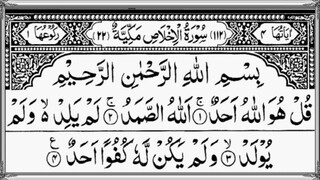 اٰيَاتُهَا ٤ (١١٢) سُوْرَةُ الْاِخْلَاصِ مَكِّيَّةٌ (٢٢) رُكُوْعُهَا ١
بِسْمِ اللّٰهِ الرَّحْمٰنِ الرَّحِيْمِ
قُلْ هُوَ اللّٰهُ اَحَدٌ ۚ ﴿١﴾ اَللّٰهُ الصَّمَدُ ۚ ﴿٢﴾ لَمْ يَلِدْ ۙ وَلَمْ
يُوْلَدْ ۙ ﴿٣﴾ وَلَمْ يَكُنْ لَّهٗ كُفُوًا اَحَدٌ ﴿٤﴾ ع